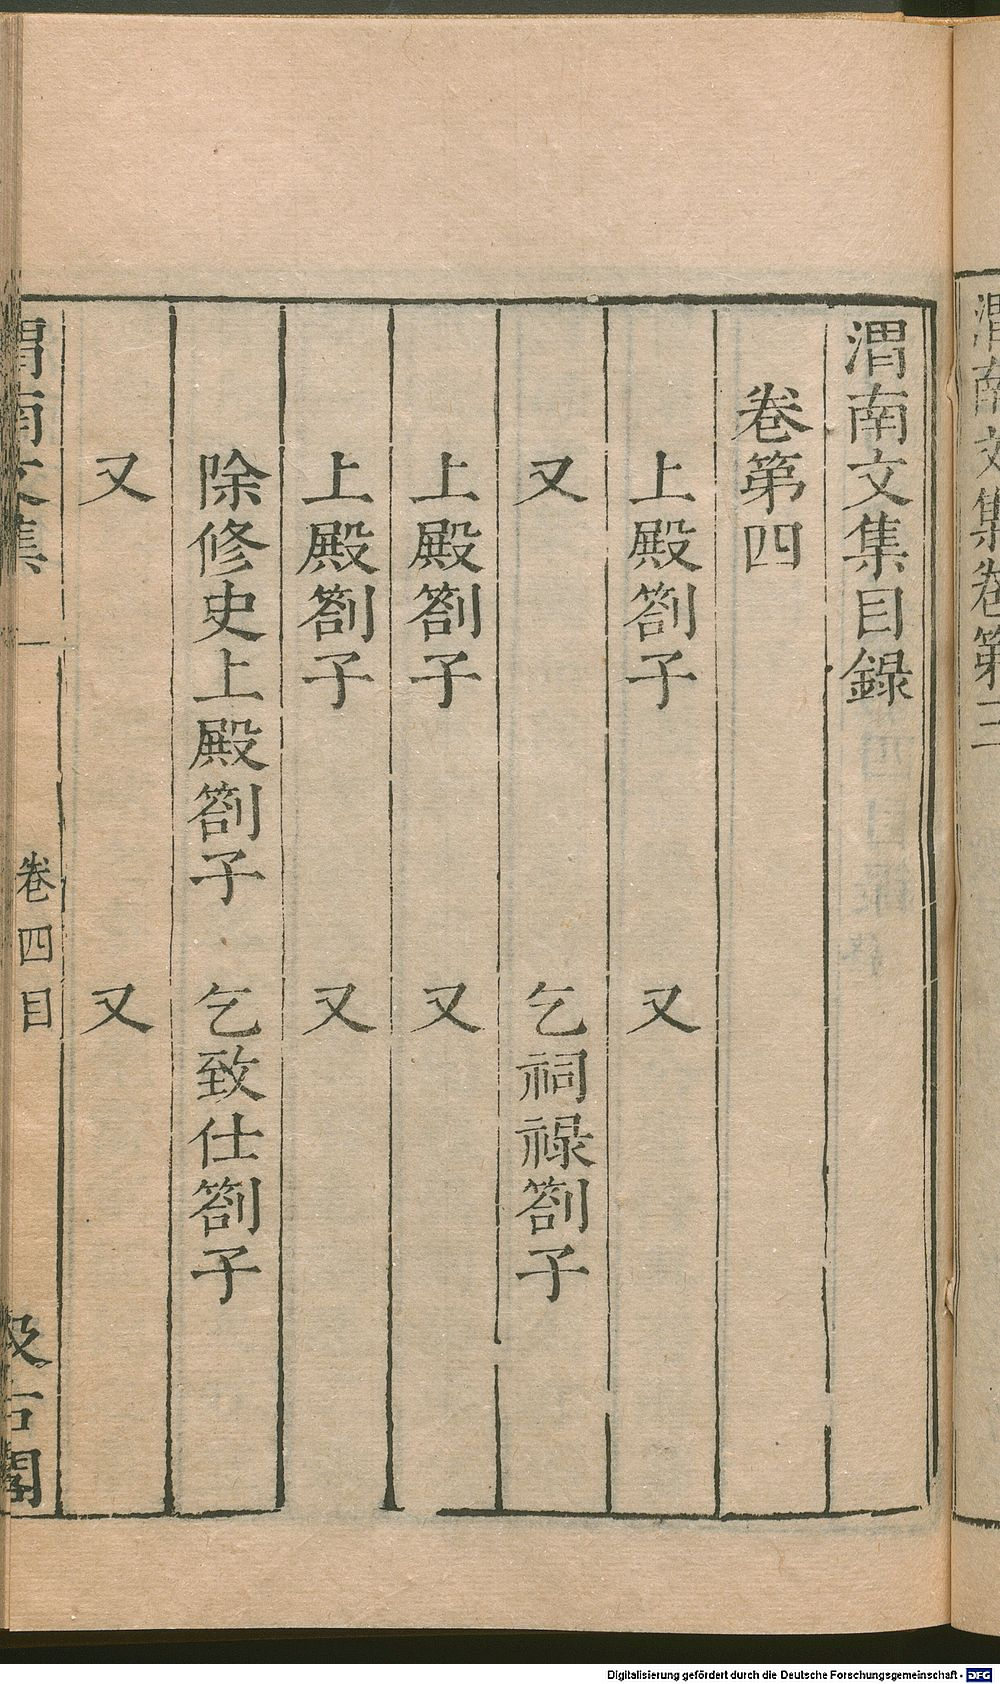 渭南文集卷第三
渭南文集目録
卷第四
上殿劄子 又
又 乞祠禄劄子
上殿劄子 又
上殿劄子 又
除修史上殿劄子 乞致仕劄子
又 又
渭南文集 一 卷四目 汲古閣
Digitalisierung gefördert durch die Deutsche Forschungsgemeinschaft - DFG